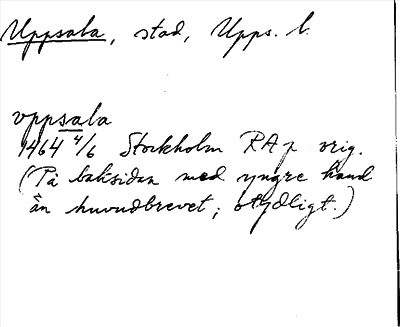 Uppsala, stad, Upps. l.
vppsala
1464 4/6 Stockholm RAp orig.
(På baksidan med yngre hand
än huvudbrevet; otydligt.)